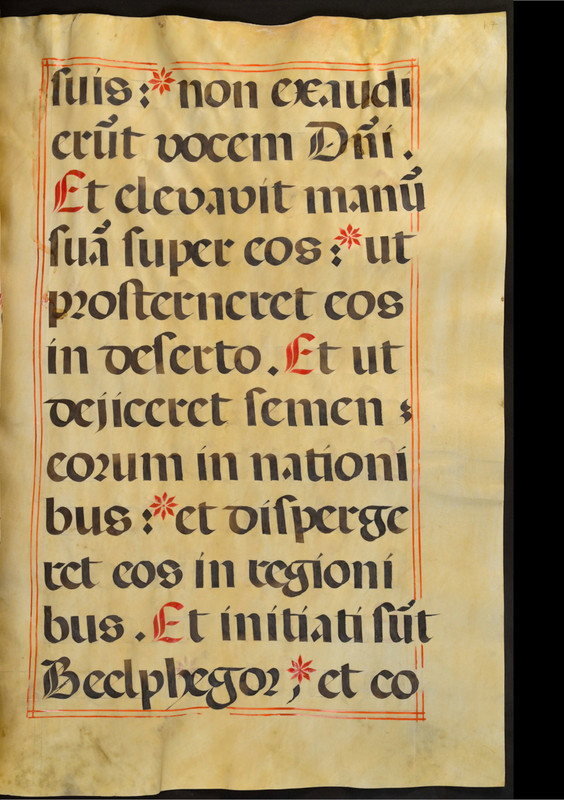 suis :* non exaudi
erũt vocem Dñi .
Et elevavit manũ
suã super eos :* ut
prosterneret eos
in deserto . Et ut
dejiceret semen
eorum in nationi
bus :* et disperge
ret eos in regioni
bus . Et initiati sũt
Beelphegor ;* et co